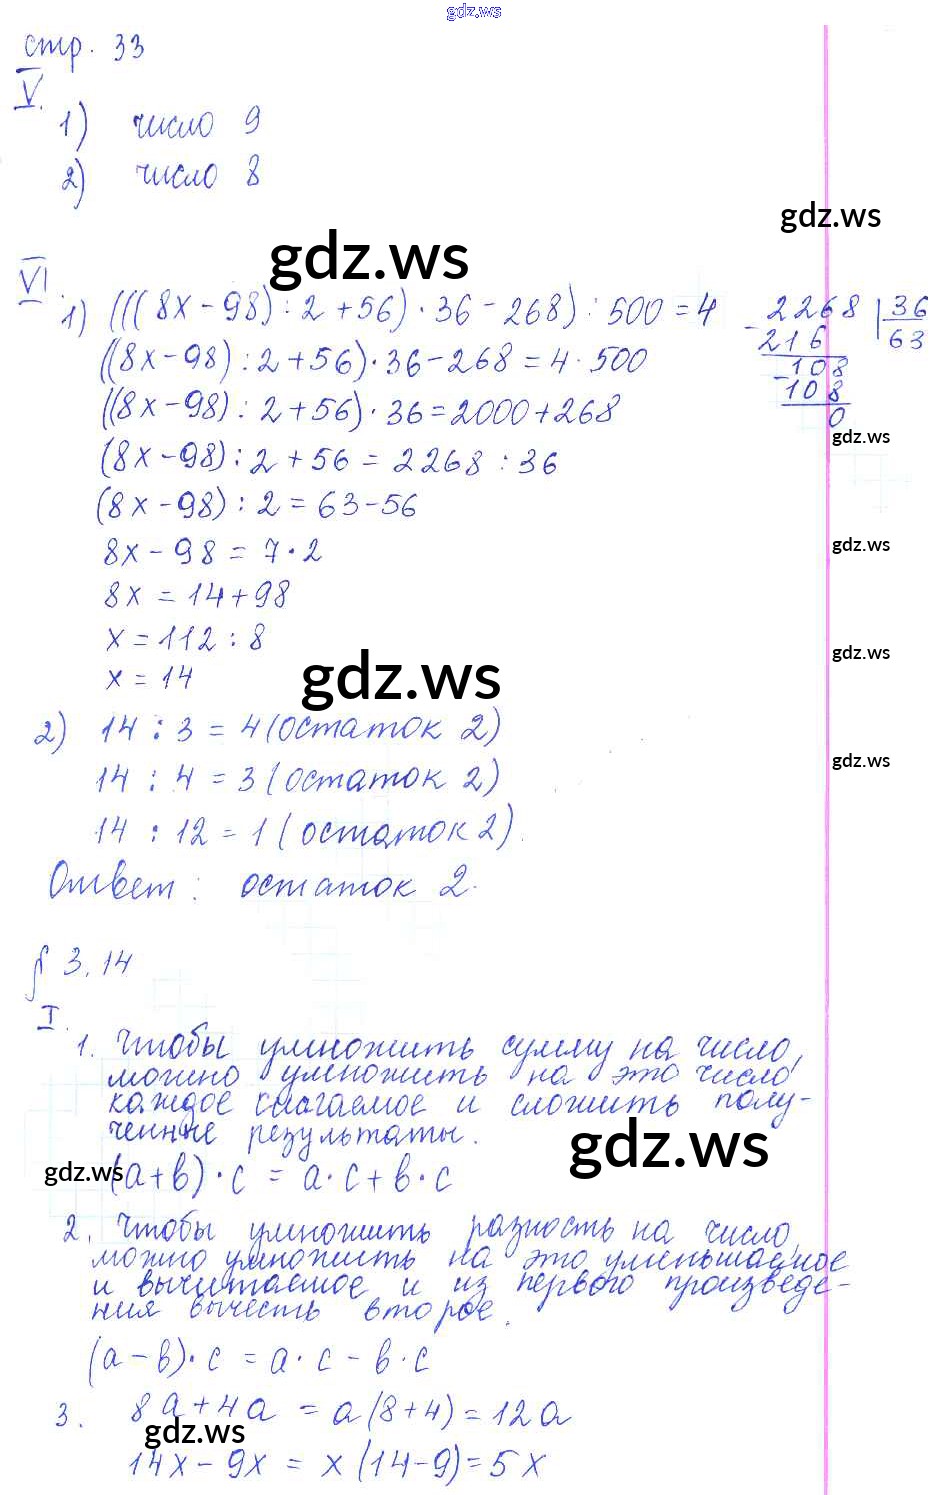 gdz.ws
стр. 33
V.
1) число 9
2) число 8
gdz.ws
gdz.ws
VI.
1) (((8x-98):2+56)·36-268):500=4
((8x-98):2+56)·36-268=4·500
((8x-98):2+56)·36=2000+268
(8x-98):2+56=2268:36
(8x-98):2=63-56
8x-98=7·2
8x=14+98
x=112:8
x=14
2268 | 36
- 216 63
108
- 108
0
gdz.ws
gdz.ws
gdz.ws
gdz.ws
gdz.ws
2) 14:3=4(остаток 2)
14:4=3(остаток 2)
14:12=1(остаток 2).
Ответ: остаток 2.
§ 3.14
I.
1. Чтобы умножить сумму на число,
можно умножить на это число
каждое слагаемое и сложить полу-
ченные результаты.
gdz.ws
gdz.ws
(a+b)·c=a·c+b·c
2. Чтобы умножить разность на число,
можно умножить на это уменьшаемое
и вычитаемое и из первого произведе-
ния вычесть второе.
(a-b)·c=a·c-b·c
3. 8a+4a=a(8+4)=12a
gdz.ws
14x-9x=x(14-9)=5x